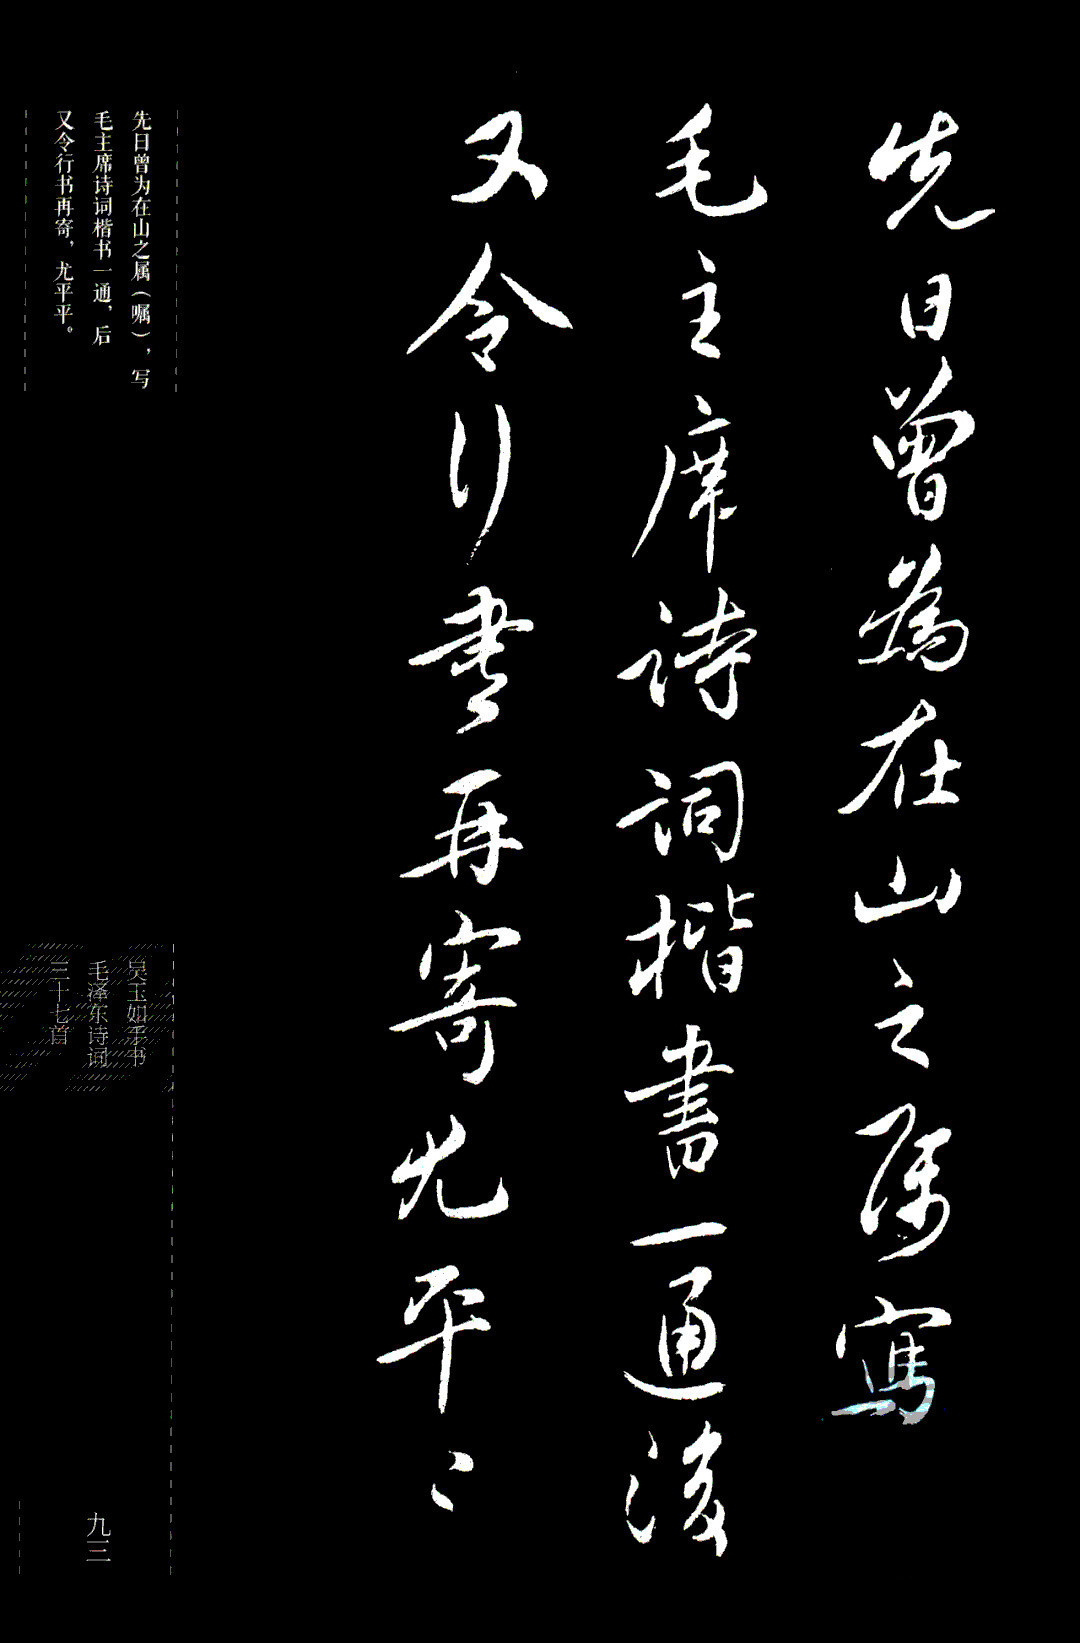 先日曾為在山之属寫
毛主席詩詞楷書一通後
又令行書再寄尤平〻
先日曾为在山之属（嘱），写
毛主席诗词楷书一通，后
又令行书再寄，尤平平。
吴玉如手书
毛泽东诗词
三十七首
九三